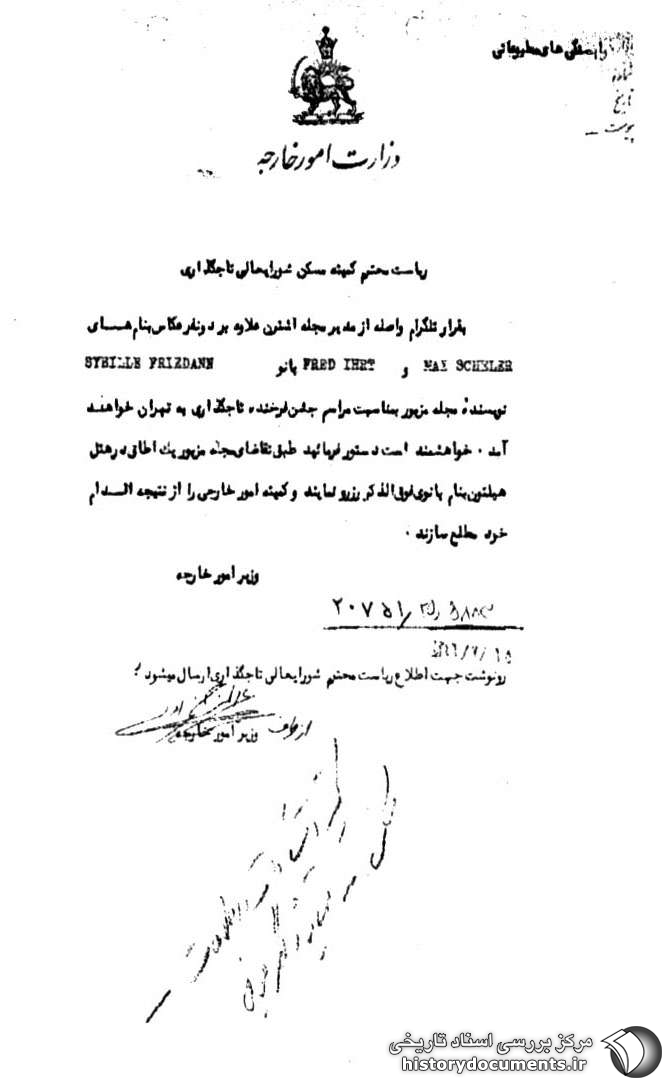 وابستگی های مطبوعاتی
شماره
تاریخ
پیوست
وزارت امور خارجه
ریاست محترم کمیته مسکن شورایعالی تاجگذاری
بقرار تلگرام واصله از مدیر مجله اشترن علاوه بر دونفر عکاس بنام هـــای
MAX SCHELER و FRED IHRT بانو SYBILLE FRIEDANN
نویسندهٔ مجله مزبور بمناسبت مراسم جشن فرخنده تاجگذاری به تهران خواهنـد
آمد . خواهشمند است دستور فرمائید طبق تقاضای مجله مزبور یک اطاق در هتل
هیلتون بنام بانوی فوق الذکر رزرو نمایند و کمیته امور خارجی را از نتیجه اقـدام
خود مطلع سازند .
وزیر امور خارجه
۲۰۷۵۱/
رونوشت جهت اطلاع ریاست محترم شورایعالی تاجگذاری ارسال میشود
از طرف وزیر امور خارجه
مرکز بررسی اسناد تاریخی
historydocuments.ir